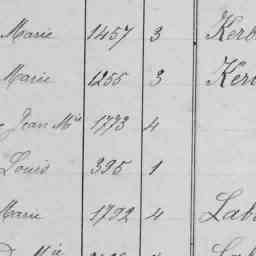 Marie 1457 3 Kerb
Marie 1255 3 Ker
Jean Mie 1773 4
Louis 395 1
Marie 1792 4 Lab